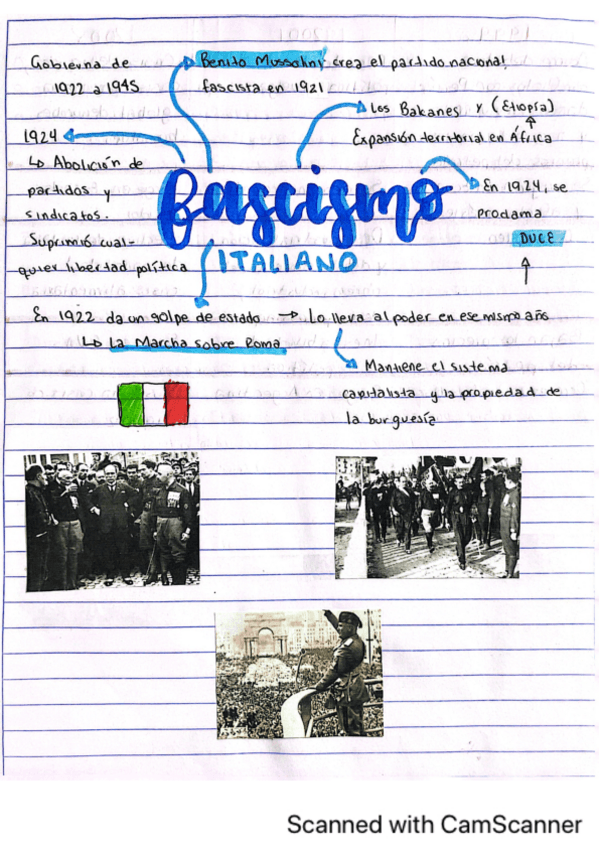 Gobierna de
1922 a 1945
Benito Mussolini crea el partido nacional
fascista en 1921
Los Balcanes y (Etiopía)
Expansión territorial en África
1924
↳ Abolición de
partidos y
sindicatos.
Suprimió cual-
quier libertad política
fascismo
ITALIANO
En 1924, se
proclama
DUCE
En 1922 da un golpe de estado → Lo lleva al poder en ese mismo año
↳ La Marcha sobre Roma
Mantiene el sistema
capitalista y la propiedad de
la burguesía
Scanned with CamScanner